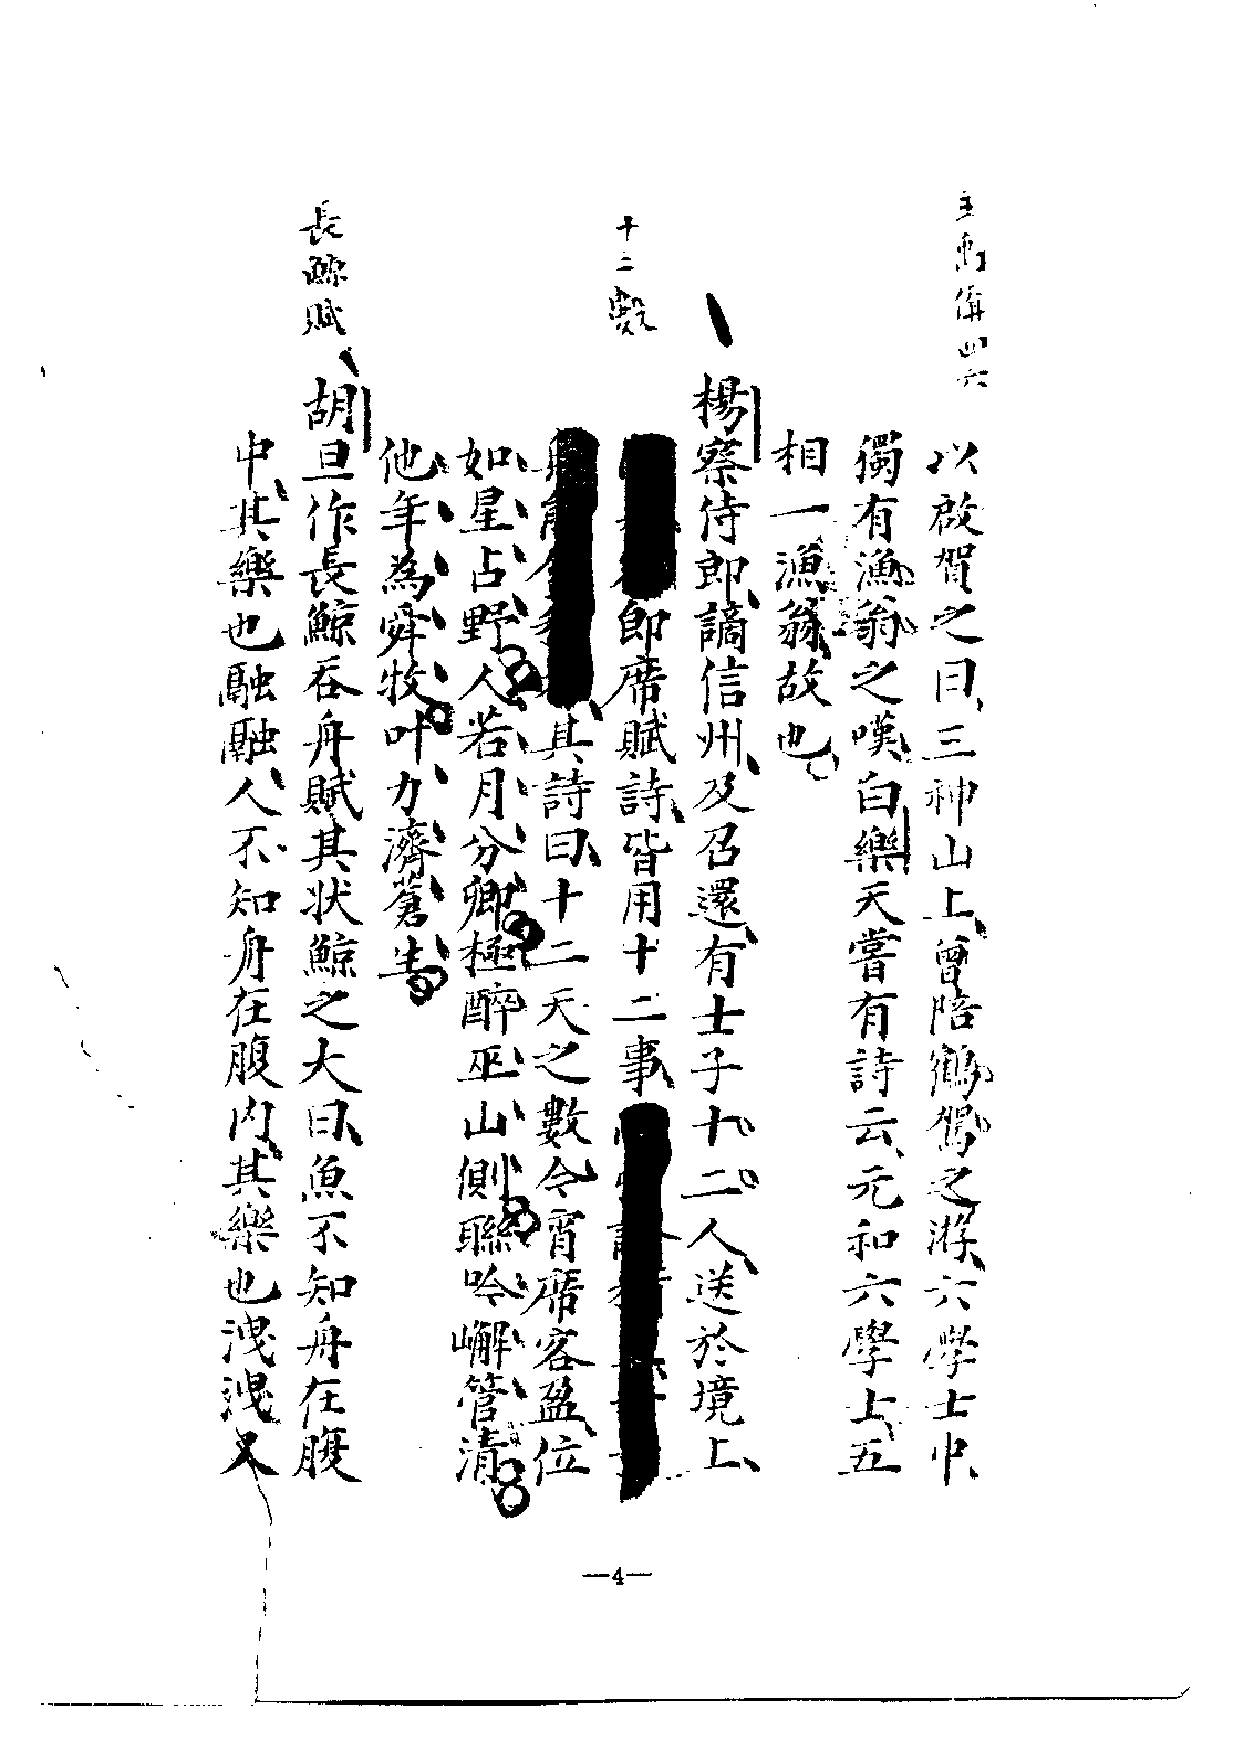 以啟賀之曰三神山上曾陪鶴駕之游六學士中
獨有漁翁之嘆白樂天嘗有詩云元和六學士五
相一漁翁故也
楊察侍郎謫信州及召還有士子十二人送於境上
即席賦詩皆用十二事
其詩曰十二天之數今宵席客盈位
如星占野人若月分卿極醉巫山側聯吟嶰管清
他年為舜牧叶力濟蒼生
十二
長鯨賦
胡旦作長鯨吞舟賦其状鯨之大曰魚不知舟在腹
中其樂也融融人不知舟在腹內其樂也洩洩又
—4—